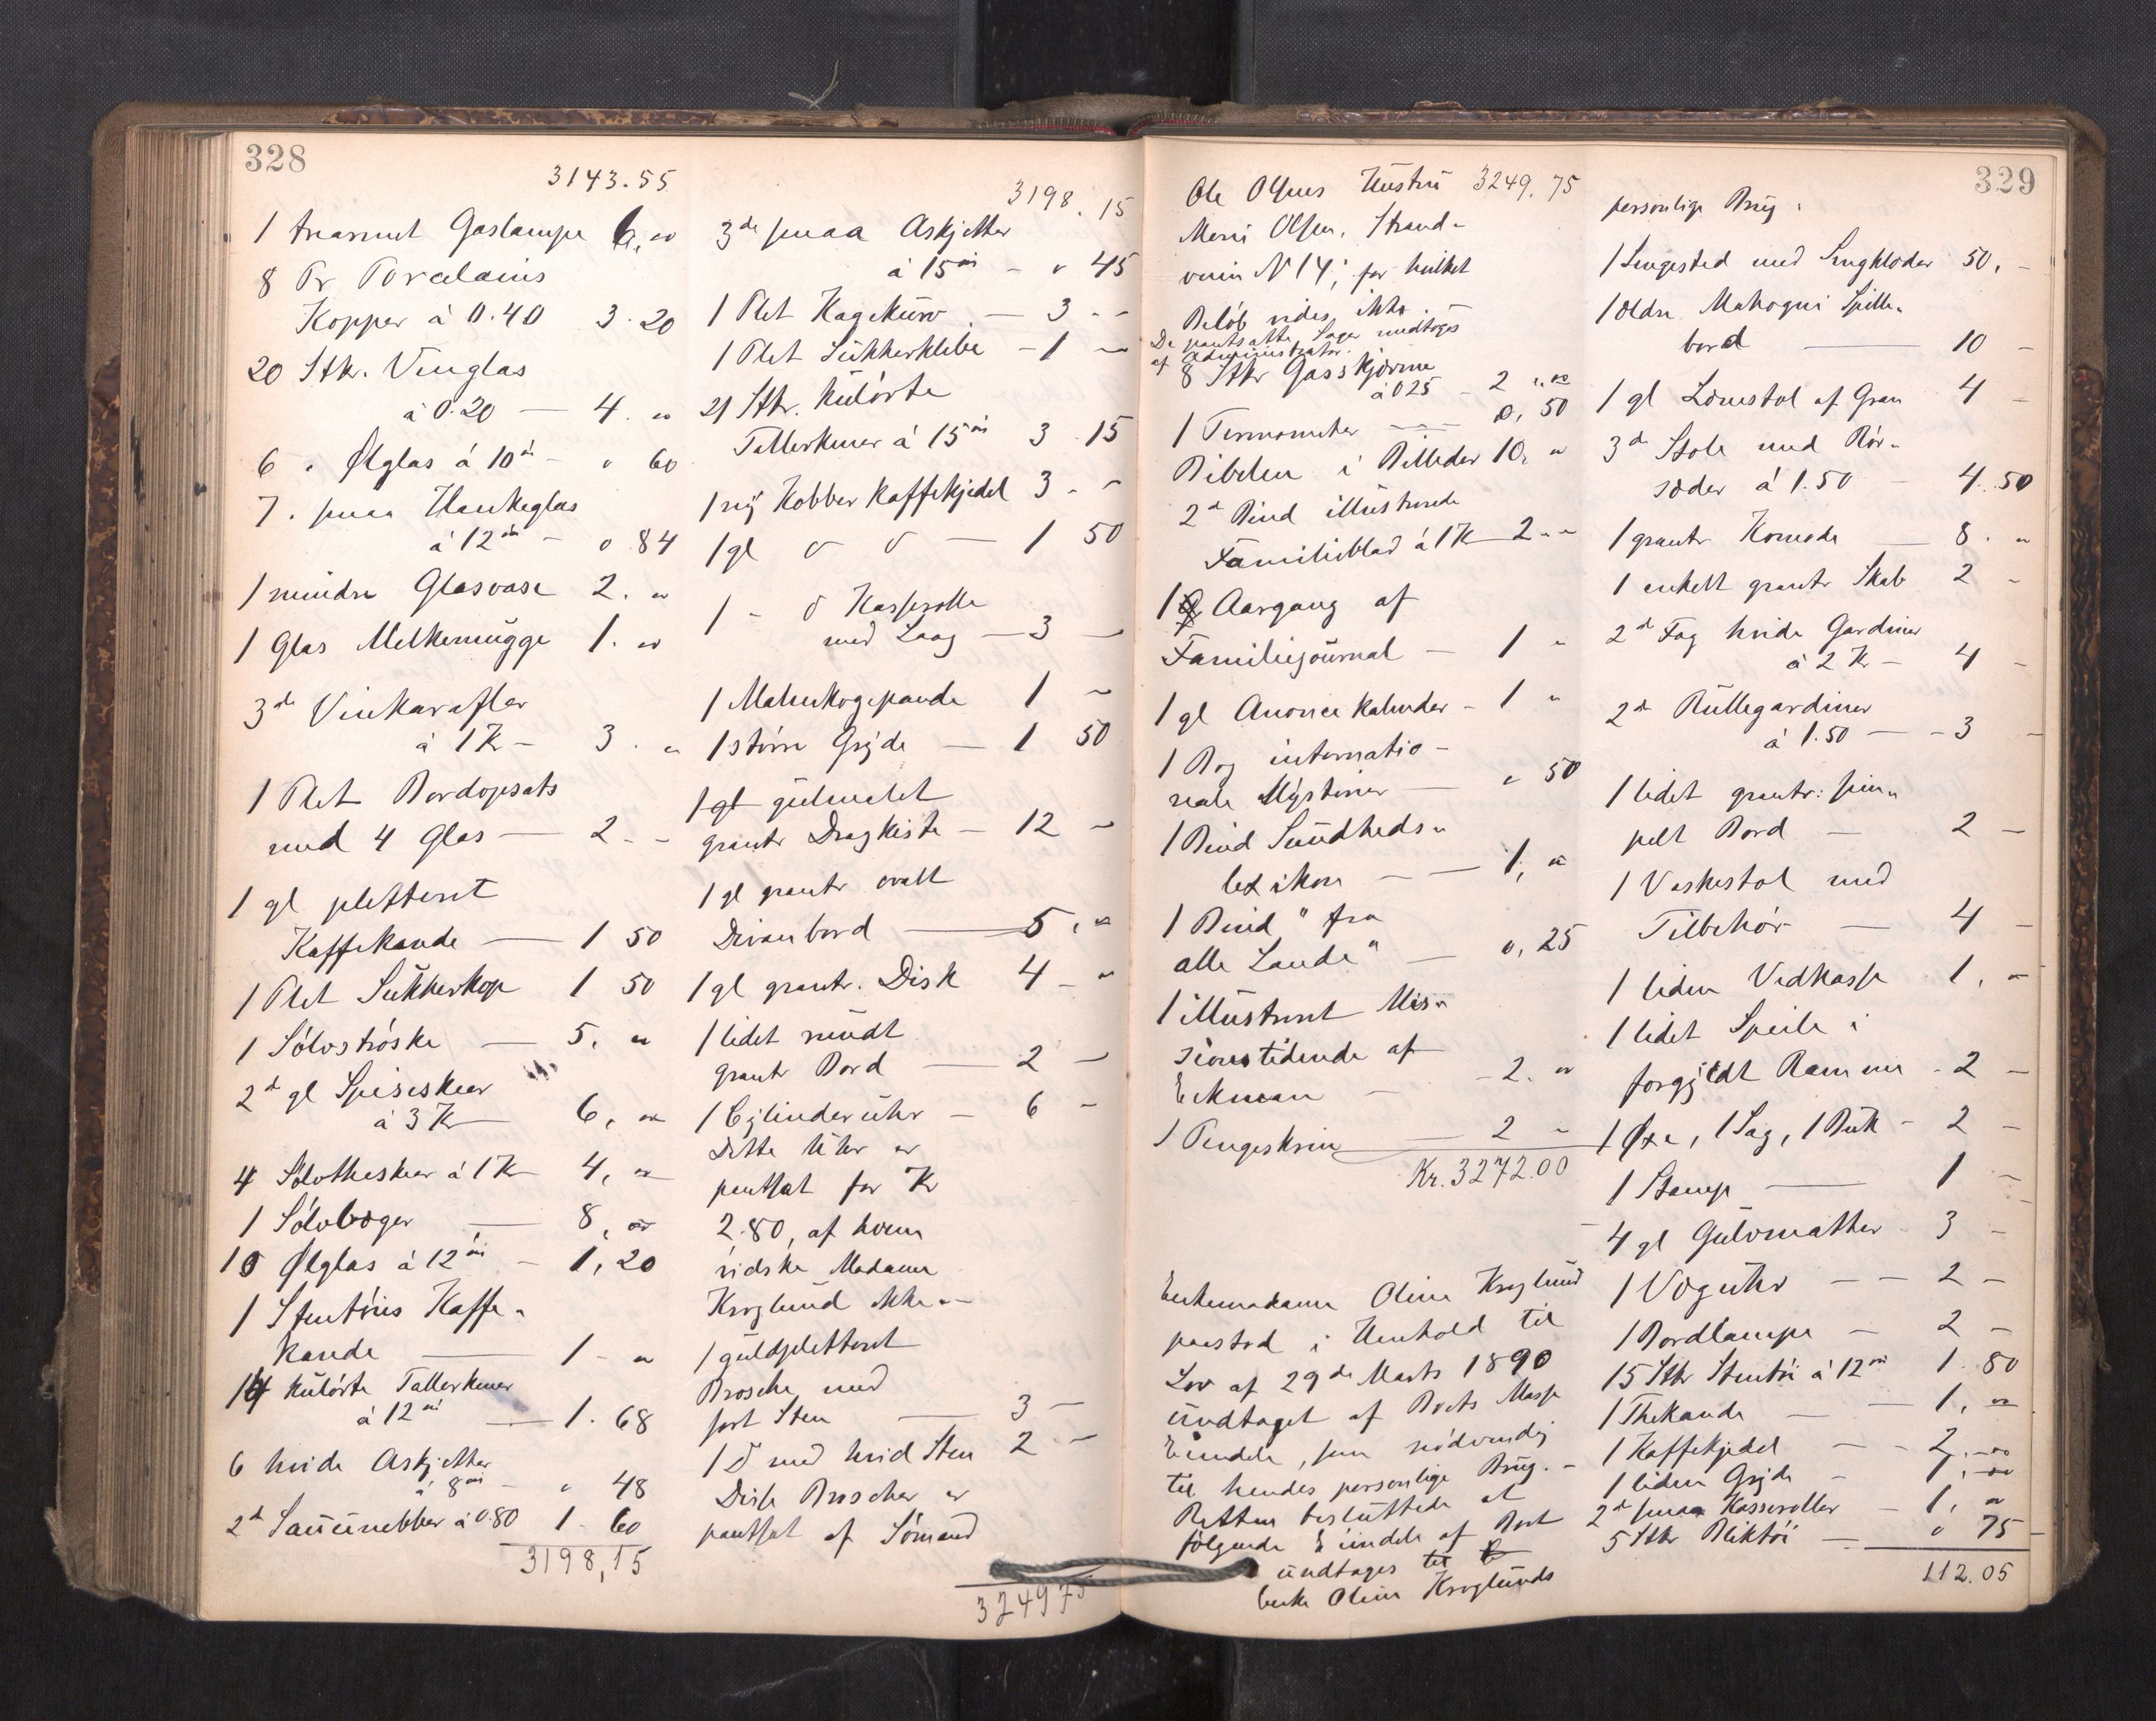 328
3143.55
1 trearmet Gaslampe 6, "
8 Pr Porcelains
Kopper á 0.40 3.20
20 Stk. Vinglas
á 0.20 — 4. "
6 " Ølglas á 10 ør — " 60
7. smaa Hankeglas
á 12 ør — 0.84
1 mindre Glasvase 2. "
1 Glas Melkemugge 1. "
3de Vinkarafler
á 1 Kr — 3. "
1 Plet Bordopsats
med 4 Glas — 2. -
1 gl pletteret
Kaffekande — 1 50
1 Plet Sukkerkop 1 50
1 Sølvstrøske — 5, "
2de gl Spiseskeer
á 3 Kr — 6, "
4 Sølvtheskeer á 1 Kr 4, "
1 Sølvbæger — 8, "
10 Ølglas á 12 ør — 1,20
1 Stentøis Kaffe-
kande — 1 - "
14 kulørte Tallerkener
á 12 ør — 1.68
6 hvide Askjetter
á 8 ør — " 48
2de Sausenebber á 0.80 1.60
3198,15
3198.15
3de smaa Askjetter
á 15 ør — " 45
1 Plet Kagekurv — 3 - -
1 Plet Sukkerklibe — 1 —
21 Stk. kulørte
Tallerkener á 15 ør 3.15
1 ny Kobber Kaffekjedel 3 - -
1 gl do do — 1 50
1 - do Kasserolle
med Laag — 3 —
1 Malmkogepande 1 —
1 større Gryde — 1 50
1 gl gulmalet
grantr Dragkiste — 12 —
1 gl grantr ovalt
Divanbord — 5, "
1 gl grantr. Disk 4 - "
1 lidet rundt
grantr Bord — 2 —
1 Cylinderuhr — 6 -
Dette Uhr er
pantsat for Kr
2.80, af hvem
vidste Madame
Kroglund ikke. —
1 guldpletteret
Brosche med
sort Sten — 3 —
1 do med hvid Sten 2 —
Disse Broscher er
pantsat af Sømand
3249 75
329
Ole Olsens Hustru 3249.75
Meri Olsen, Strand-
veien N 14; for hvilket
Beløb vides ikke.
De pantsatte Sager modtoges
af Administrator.
8 Stkr Gasskjærme
á 025 - 2 ". "
1 Termometer — 0,50
Bibelen i Billeder 10, "
2de Bind illustrerede
Familieblad á 1 Kr 2 - -
1 Aargang af
Familiejournal — 1 "
1 gl Anonce kalender - 1 "
1 Bog internatio-
nale Mysterier — " 50
1 Bind Sundheds-
lexikon — 1, "
1 Bind "fra
alle Lande" — 0,25
1 illustreret Mis-
sionstidende af
Eckman — 2. "
1 Pengeskrin — 2 -
Kr. 3272.00
Enkemadame Oline Kroglund
paastod i Henhold til
Lov af 29de Marts 1890
undtaget af Boets Masse
Eiendele, som nødvendig
til hendes personlige Brug. —
Retten besluttede at
følgende Eiendele af Boet
undtages til
Enke Oline Kroglunds
personlige Brug:
1 Sengested med Sengklæder 50, -
1 ældre Mahogni Spille-
bord — 10 -
1 gl Lænestol af Gran 4 -
3de Stole med Rør-
sæder á 1.50 - 4.50
1 grantr Komode — 8. "
1 enkelt grantr Skab 2 -
2de Fag hvide Gardiner
á 2 Kr — 4 -
2de Rullegardiner
á 1.50 — 3 -
1 lidet grantr: sim-
pelt Bord — 2 —
1 Vaskestol med
Tilbehør — 4 -
1 liden Vedkasse 1, "
1 lidet Speile i
forgyldt Ramme - 2 —
1 Øxe, 1 Sag, 1 Buk - 2 -
1 Stamp — 1 -
4 gl Gulvmatter - 3 -
1 Væguhr — 2 -
1 Bordlampe — 2 -
15 Stkr Stentøi á 12 ør 1.80
1 Thekande — 1, "
1 Kaffekjedel — 2, "
1 liden Gryde - 1, "
2de smaa Kasseroller — 1, "
5 Stkr Bliktøi — " 75
112.05